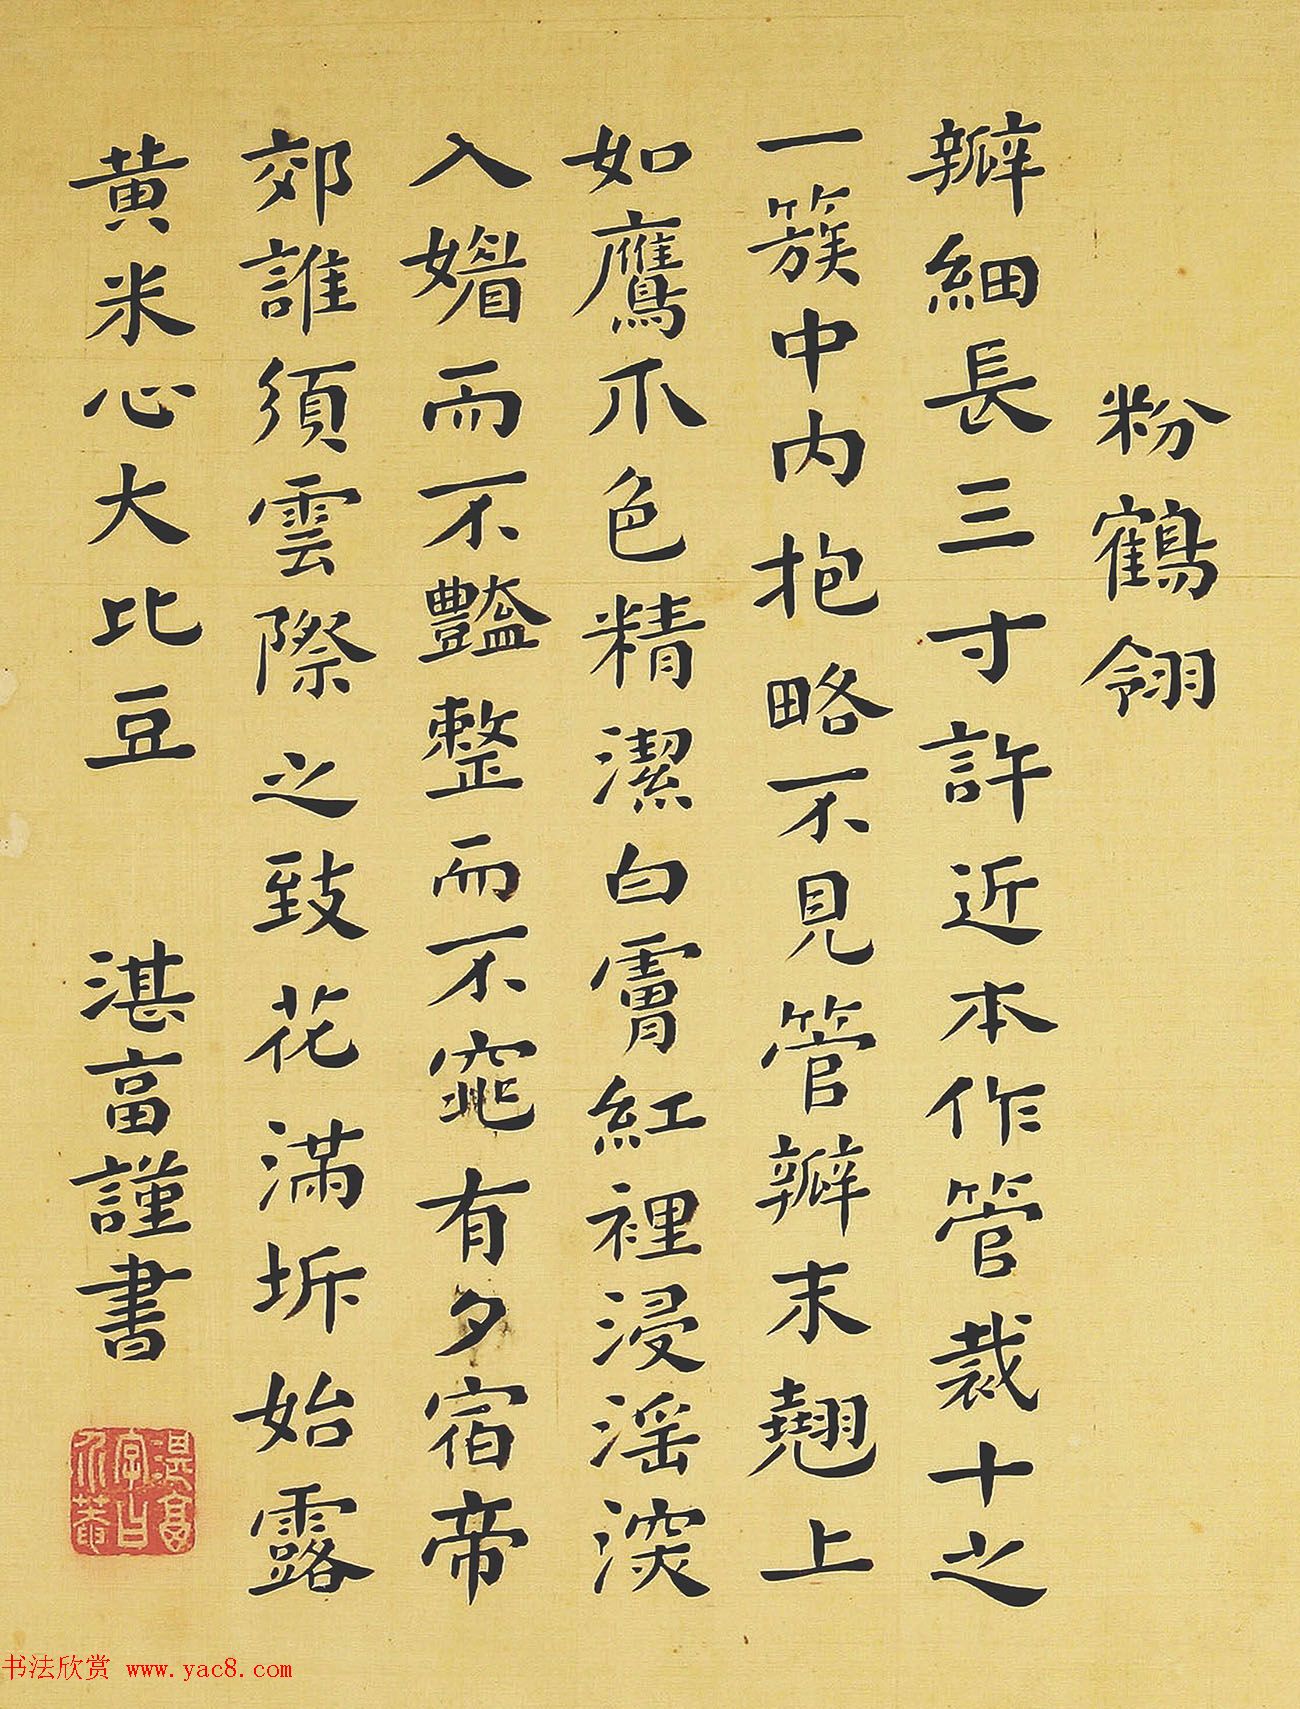 粉鶴翎
瓣細長三寸許近本作管裁十之
一簇中內抱略不見管瓣末翹上
如鷹爪色精潔白膚紅裡浸淫深
入媚而不豔整而不窕有夕宿帝
郊誰須雲際之致花滿坼始露
黃米心大比豆 湛富謹書
书法欣赏 www.yac8.com